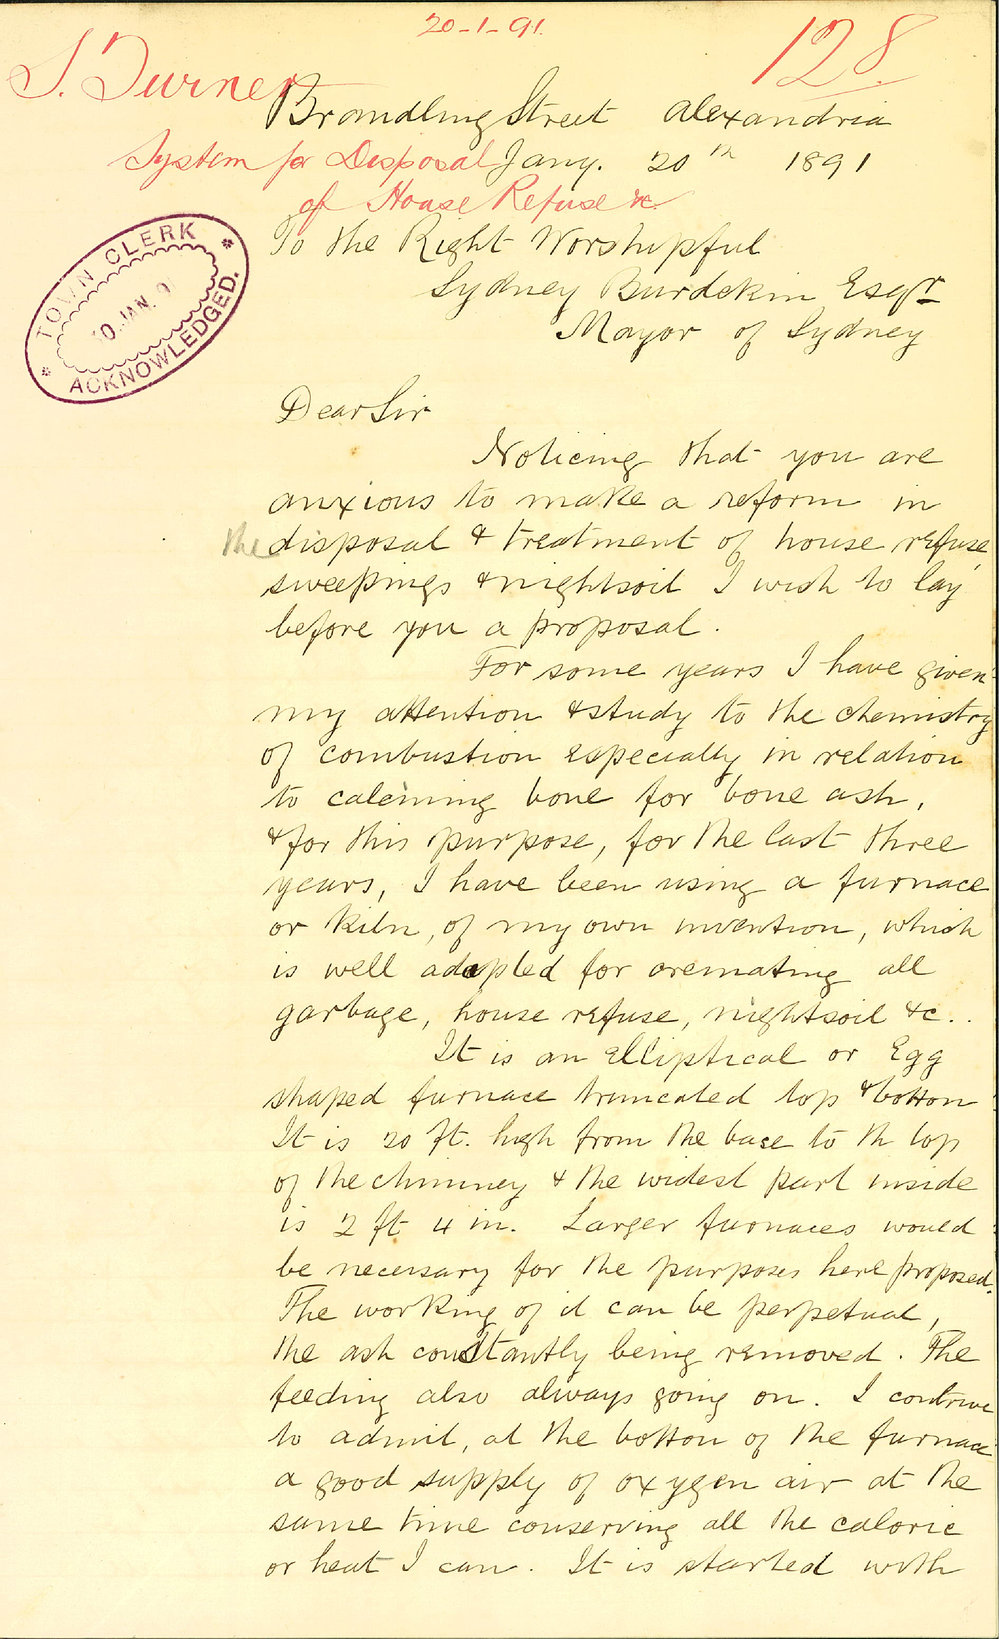 20-1-91.
128.
S. Turner
Brandling Street Alexandria
System for Disposal
Jany. 20th 1891
of House Refuse &c
To the Right Worshipful
Sydney Burdekin Esqr
Mayor of Sydney
TOWN CLERK
JAN. 9
ACKNOWLEDGED.
Dear Sir
Noticing that you are
anxious to make a reform in
the disposal & treatment of house refuse
sweepings & nightsoil I wish to lay
before you a proposal.
For some years I have given
my attention & study to the chemistry
of combustion especially in relation
to calcining bone for bone ash,
& for this purpose, for the last three
years, I have been using a furnace
or kiln, of my own invention, which
is well adapted for cremating all
garbage, house refuse, nightsoil &c..
It is an elliptical or Egg
shaped furnace truncated top & bottom
It is 20 ft. high from the base to th top
of the chimney & the widest part inside
is 2 ft 4 in. Larger furnaces would
be necessary for the purposes here proposed.
The working of it can be perpetual,
the ash constantly being removed. The
feeding also always going on. I contrive
to admit, at the bottom of the furnace
a good supply of oxygen air at the
same time conserving all the caloric
or heat I can. It is started with